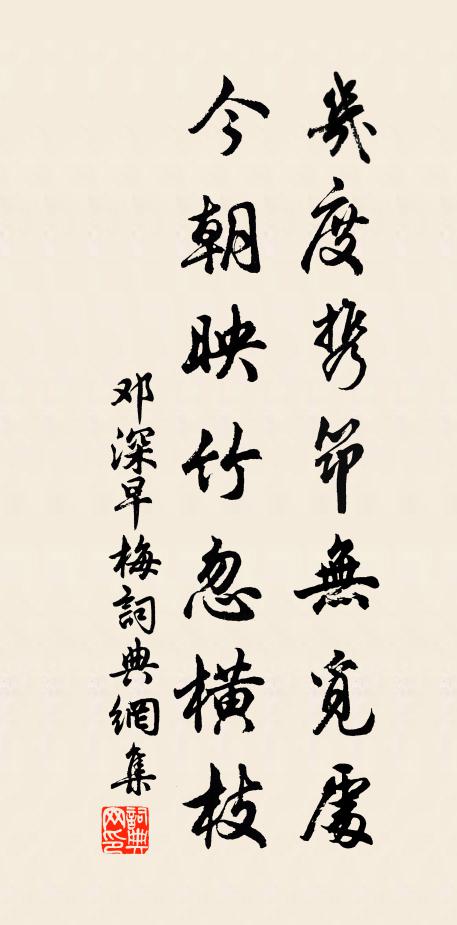 幾度携筇無覓處
今朝映竹忽橫枝
邓深早梅詞典網集
詞典网印